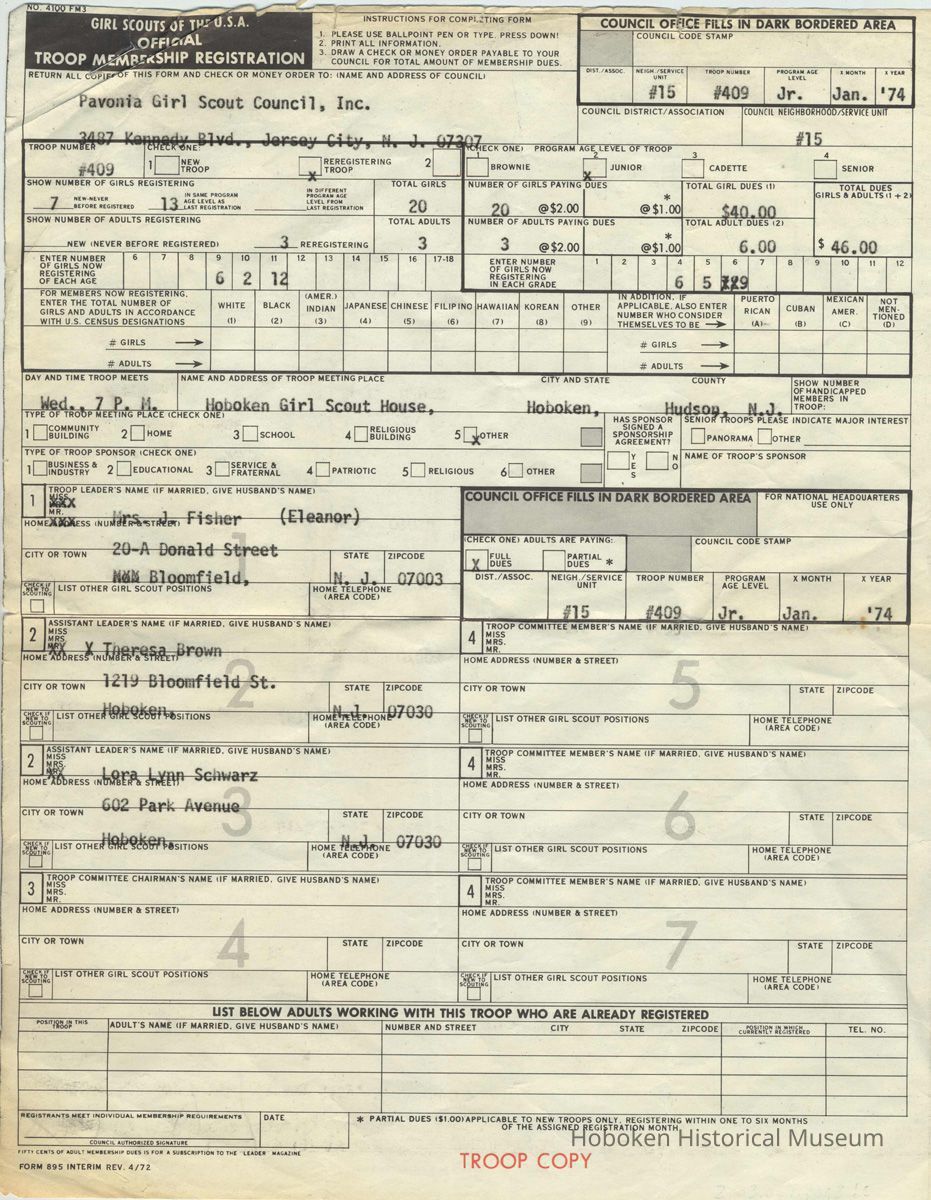 NO. 4100 FM3
GIRL SCOUTS OF THE U.S.A.
OFFICIAL
TROOP MEMBERSHIP REGISTRATION
INSTRUCTIONS FOR COMPLETING FORM
1. PLEASE USE BALLPOINT PEN OR TYPE. PRESS DOWN!
2. PRINT ALL INFORMATION.
3. DRAW A CHECK OR MONEY ORDER PAYABLE TO YOUR
COUNCIL FOR TOTAL AMOUNT OF MEMBERSHIP DUES.
COUNCIL OFFICE FILLS IN DARK BORDERED AREA
COUNCIL CODE STAMP
DIST./ASSOC. NEIGH./SERVICE UNIT TROOP NUMBER PROGRAM AGE LEVEL X MONTH X YEAR
#15 #409 Jr. Jan. '74
RETURN ALL COPIES OF THIS FORM AND CHECK OR MONEY ORDER TO: (NAME AND ADDRESS OF COUNCIL)
Pavonia Girl Scout Council, Inc.
3487 Kennedy Blvd., Jersey City, N. J. 07307
COUNCIL DISTRICT/ASSOCIATION COUNCIL NEIGHBORHOOD/SERVICE UNIT
#15
TROOP NUMBER (CHECK ONE)
#409 1 NEW TROOP X REREGISTERING TROOP 2
(CHECK ONE) PROGRAM AGE LEVEL OF TROOP
1 BROWNIE 2 X JUNIOR 3 CADETTE 4 SENIOR
SHOW NUMBER OF GIRLS REGISTERING TOTAL GIRLS
7 NEW-NEVER BEFORE REGISTERED 13 IN SAME PROGRAM AGE LEVEL AS LAST REGISTRATION IN DIFFERENT PROGRAM AGE LEVEL FROM LAST REGISTRATION 20
NUMBER OF GIRLS PAYING DUES TOTAL GIRL DUES (1) TOTAL DUES GIRLS & ADULTS (1 + 2)
20 @$2.00 * @$1.00 $40.00
SHOW NUMBER OF ADULTS REGISTERING TOTAL ADULTS
NEW (NEVER BEFORE REGISTERED) 3 REREGISTERING 3
NUMBER OF ADULTS PAYING DUES TOTAL ADULT DUES (2)
3 @$2.00 * @$1.00 6.00 $ 46.00
ENTER NUMBER OF GIRLS NOW REGISTERING OF EACH AGE
6 7 8 9 10 11 12 13 14 15 16 17-18
6 2 12
ENTER NUMBER OF GIRLS NOW REGISTERING IN EACH GRADE
1 2 3 4 5 6 7 8 9 10 11 12
6 5 9
FOR MEMBERS NOW REGISTERING, ENTER THE TOTAL NUMBER OF GIRLS AND ADULTS IN ACCORDANCE WITH U.S. CENSUS DESIGNATIONS
WHITE (1) BLACK (2) (AMER.) INDIAN (3) JAPANESE (4) CHINESE (5) FILIPINO (6) HAWAIIAN (7) KOREAN (8) OTHER (9)
IN ADDITION, IF APPLICABLE, ALSO ENTER NUMBER WHO CONSIDER THEMSELVES TO BE
PUERTO RICAN (A) CUBAN (B) MEXICAN AMER. (C) NOT MEN-TIONED (D)
# GIRLS # GIRLS
# ADULTS # ADULTS
DAY AND TIME TROOP MEETS NAME AND ADDRESS OF TROOP MEETING PLACE CITY AND STATE COUNTY SHOW NUMBER OF HANDICAPPED MEMBERS IN TROOP:
Wed., 7 P. M. Hoboken Girl Scout House, Hoboken, Hudson, N.J.
TYPE OF TROOP MEETING PLACE (CHECK ONE)
1 COMMUNITY BUILDING 2 HOME 3 SCHOOL 4 RELIGIOUS BUILDING 5 X OTHER
HAS SPONSOR SIGNED A SPONSORSHIP AGREEMENT?
YES NO
SENIOR TROOPS PLEASE INDICATE MAJOR INTEREST
PANORAMA OTHER
TYPE OF TROOP SPONSOR (CHECK ONE)
1 BUSINESS & INDUSTRY 2 EDUCATIONAL 3 SERVICE & FRATERNAL 4 PATRIOTIC 5 RELIGIOUS 6 OTHER
NAME OF TROOP'S SPONSOR
1 TROOP LEADER'S NAME (IF MARRIED, GIVE HUSBAND'S NAME)
MISS
MR.
Mrs. J. Fisher (Eleanor)
HOME ADDRESS (NUMBER & STREET)
20-A Donald Street
CITY OR TOWN STATE ZIPCODE
Bloomfield, N. J. 07003
CHECK IF NEW TO SCOUTING LIST OTHER GIRL SCOUT POSITIONS HOME TELEPHONE (AREA CODE)
1
COUNCIL OFFICE FILLS IN DARK BORDERED AREA
FOR NATIONAL HEADQUARTERS USE ONLY
(CHECK ONE) ADULTS ARE PAYING:
X FULL DUES PARTIAL DUES *
COUNCIL CODE STAMP
DIST./ASSOC. NEIGH./SERVICE UNIT TROOP NUMBER PROGRAM AGE LEVEL X MONTH X YEAR
#15 #409 Jr. Jan. '74
2 ASSISTANT LEADER'S NAME (IF MARRIED, GIVE HUSBAND'S NAME)
MISS
MRS.
X Theresa Brown
HOME ADDRESS (NUMBER & STREET)
1219 Bloomfield St.
CITY OR TOWN STATE ZIPCODE
Hoboken, N.J. 07030
CHECK IF NEW TO SCOUTING LIST OTHER GIRL SCOUT POSITIONS HOME TELEPHONE (AREA CODE)
2
4 TROOP COMMITTEE MEMBER'S NAME (IF MARRIED, GIVE HUSBAND'S NAME)
MISS
MRS.
MR.
HOME ADDRESS (NUMBER & STREET)
CITY OR TOWN STATE ZIPCODE
CHECK IF NEW TO SCOUTING LIST OTHER GIRL SCOUT POSITIONS HOME TELEPHONE (AREA CODE)
5
2 ASSISTANT LEADER'S NAME (IF MARRIED, GIVE HUSBAND'S NAME)
MISS
MRS.
Lora Lynn Schwarz
HOME ADDRESS (NUMBER & STREET)
602 Park Avenue
CITY OR TOWN STATE ZIPCODE
Hoboken, N.J. 07030
CHECK IF NEW TO SCOUTING LIST OTHER GIRL SCOUT POSITIONS HOME TELEPHONE (AREA CODE)
3
4 TROOP COMMITTEE MEMBER'S NAME (IF MARRIED, GIVE HUSBAND'S NAME)
MISS
MRS.
MR.
HOME ADDRESS (NUMBER & STREET)
CITY OR TOWN STATE ZIPCODE
CHECK IF NEW TO SCOUTING LIST OTHER GIRL SCOUT POSITIONS HOME TELEPHONE (AREA CODE)
6
3 TROOP COMMITTEE CHAIRMAN'S NAME (IF MARRIED, GIVE HUSBAND'S NAME)
MISS
MRS.
MR.
HOME ADDRESS (NUMBER & STREET)
CITY OR TOWN STATE ZIPCODE
CHECK IF NEW TO SCOUTING LIST OTHER GIRL SCOUT POSITIONS HOME TELEPHONE (AREA CODE)
4
4 TROOP COMMITTEE MEMBER'S NAME (IF MARRIED, GIVE HUSBAND'S NAME)
MISS
MRS.
MR.
HOME ADDRESS (NUMBER & STREET)
CITY OR TOWN STATE ZIPCODE
CHECK IF NEW TO SCOUTING LIST OTHER GIRL SCOUT POSITIONS HOME TELEPHONE (AREA CODE)
7
LIST BELOW ADULTS WORKING WITH THIS TROOP WHO ARE ALREADY REGISTERED
POSITION IN THIS TROOP ADULT'S NAME (IF MARRIED, GIVE HUSBAND'S NAME) NUMBER AND STREET CITY STATE ZIPCODE POSITION IN WHICH CURRENTLY REGISTERED TEL. NO.
REGISTRANTS MEET INDIVIDUAL MEMBERSHIP REQUIREMENTS DATE
COUNCIL AUTHORIZED SIGNATURE
* PARTIAL DUES ($1.00) APPLICABLE TO NEW TROOPS ONLY, REGISTERING WITHIN ONE TO SIX MONTHS
OF THE ASSIGNED REGISTRATION MONTH.
Hoboken Historical Museum
FIFTY CENTS OF ADULT MEMBERSHIP DUES IS FOR A SUBSCRIPTION TO THE "LEADER" MAGAZINE
FORM 895 INTERIM REV. 4/72
TROOP COPY